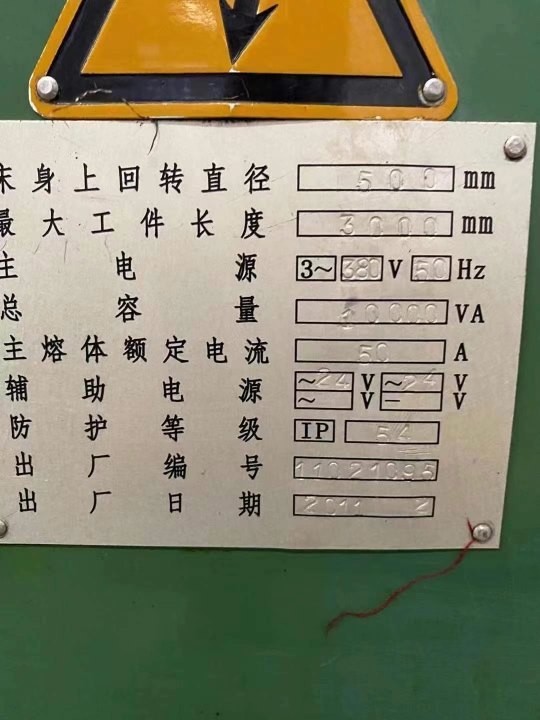 床身上回转直径 500 mm
最大工件长度 3000 mm
主电源 3~ 380 V 50 Hz
总容量 30000 VA
主熔体额定电流 50 A
辅助电源 ~24 V ~24 V
~ V - V
防护等级 IP 54
出厂编号 11021095
出厂日期 2011 2